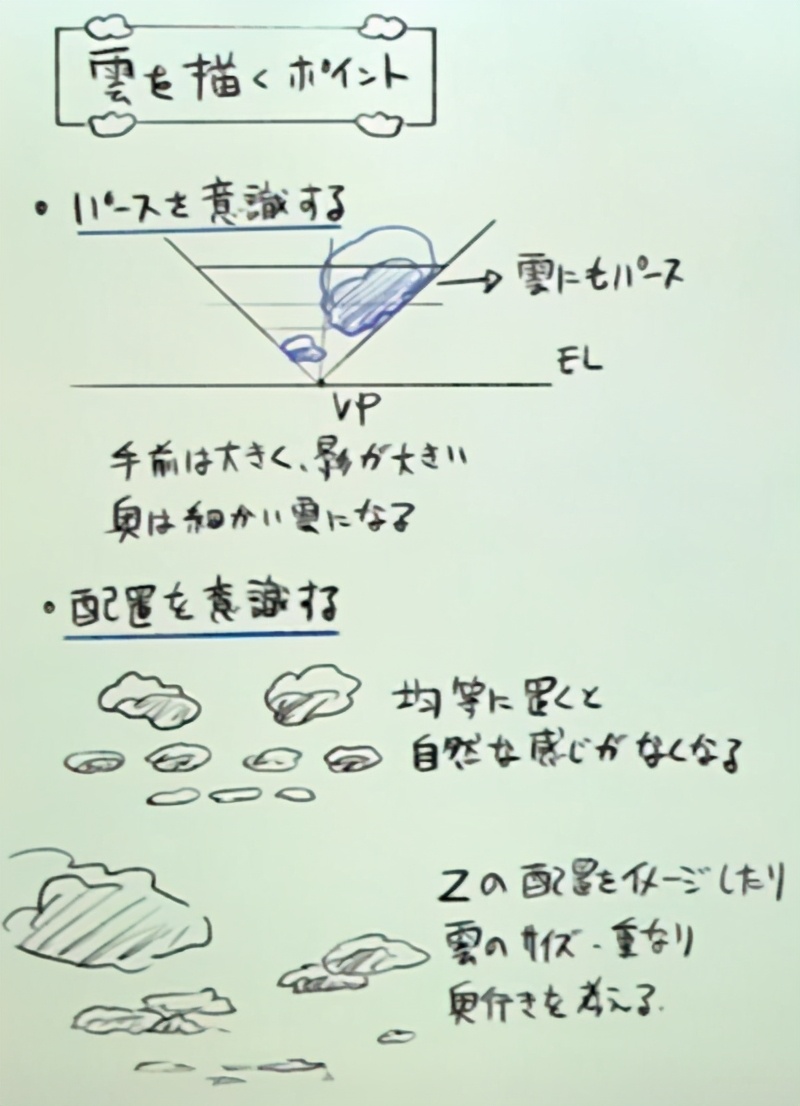 雲を描くポイント
・パースを意識する
→雲にもパース
EL
VP
手前は大きく、影が大きい
奥は細かい雲になる
・配置を意識する
均等に置くと
自然な感じがなくなる
Zの配置をイメージしたり
雲のサイズ・重なり
奥行きを考える.